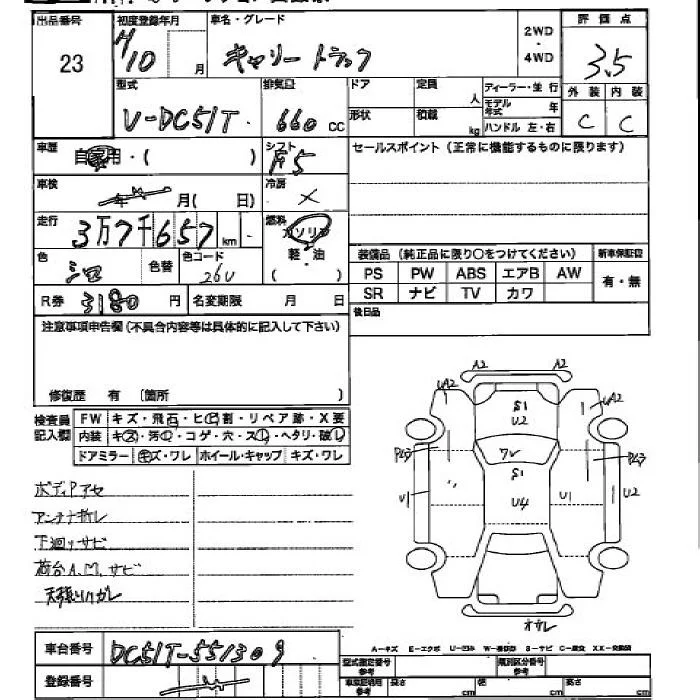 出品番号 初度登録年月 車名・グレード 2WD・4WD 評価点
23 H10 月 キャリートラック 3.5
型式 排気量 ドア 定員 人 ディーラー・並行 外装 内装
V-DC51T 660 CC 形状 積載 kg モデル年式 年 C C
ハンドル 左・右
車歴 自家用・( ) シフト F5 セールスポイント(正常に機能するものに限ります)
車検 年 月( 日) 冷房 ×
走行 3万7千657 km 燃料 ガソリン
色 シロ 色替 色コード 26U 軽・油 ( )
装備品(純正品に限り○をつけてください) 新車保証書
PS PW ABS エアB AW 有・無
SR ナビ TV カワ
R券 3180 円 名変期限 月 日 後日品
注意事項申告欄(不具合内容等は具体的に記入して下さい)
修復歴 有 〔箇所 〕
検査員記入欄 FW キズ・飛石・ヒビ割・リペア跡・X要
内装 キズ・汚レ・コゲ・穴・スレ・ヘタリ・破レ
ドアミラー キズ・ワレ ホイール・キャップ キズ・ワレ
A2 A2
UA2 UA2
S1
U2
ワレ
S1
U4
U1 U1 U2
オサレ
ボディアセ
アンテナ折レ
下廻リサビ
荷台A.M.サビ
天張リハガレ
A-キズ E-エクボ U-凹み S-サビ C-腐食 XX-交換済
車台番号 DC51T-551309
登録番号
型式指定番号 参考 類別区分番号 参考
車庫証明用 参考 長さ cm 幅 cm 高さ cm